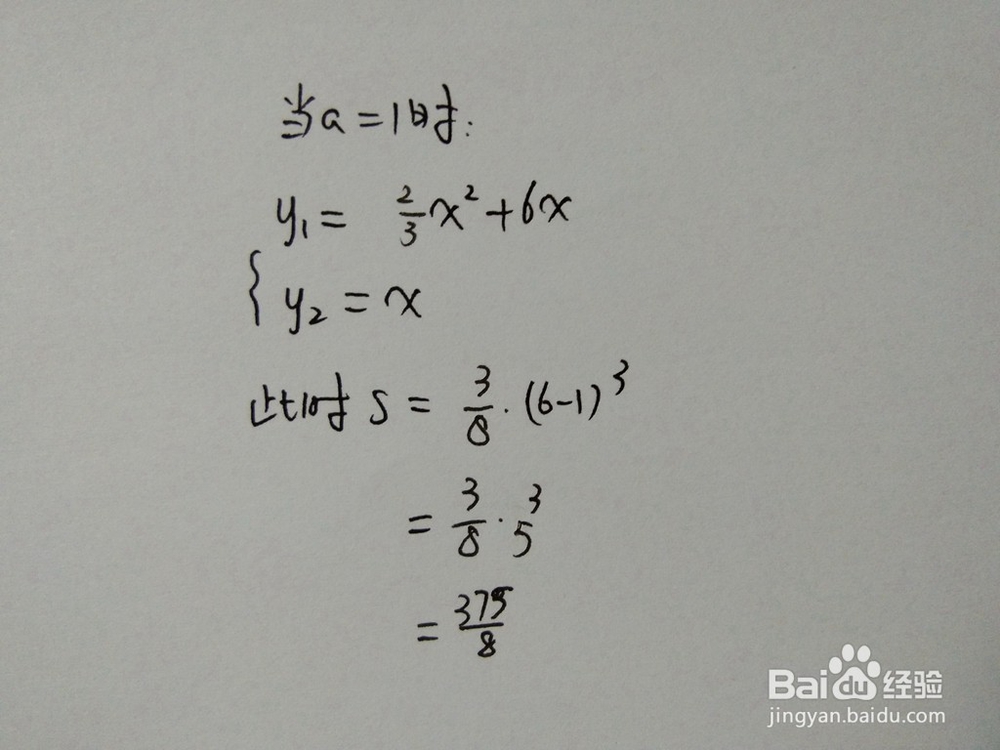 当a=1时:
y₁= 2/3 x²+6x
{ y₂=x
此时S= 3/8·(6-1)³
= 3/8·5³
= 375/8
Baidu经验
jingyan.baidu.com